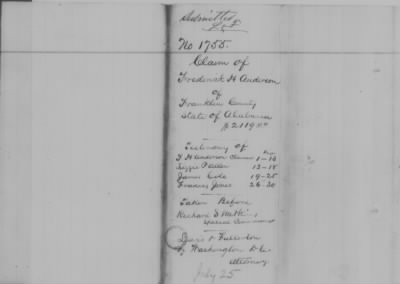 Submitted
No 1755.
Claim of
Frederick H Anderson
of
Franklin County
State of Alabama
$2119.00
Testimony of
F H Anderson Claimant 1-12
Lizzie 13-18
James Cole 19-25
Frances Jones 26-30
Taken Before
Richard S Watkins,
Special Commissioner
Davis & Fullerton
of Washington D.C.
Attorney
July 25